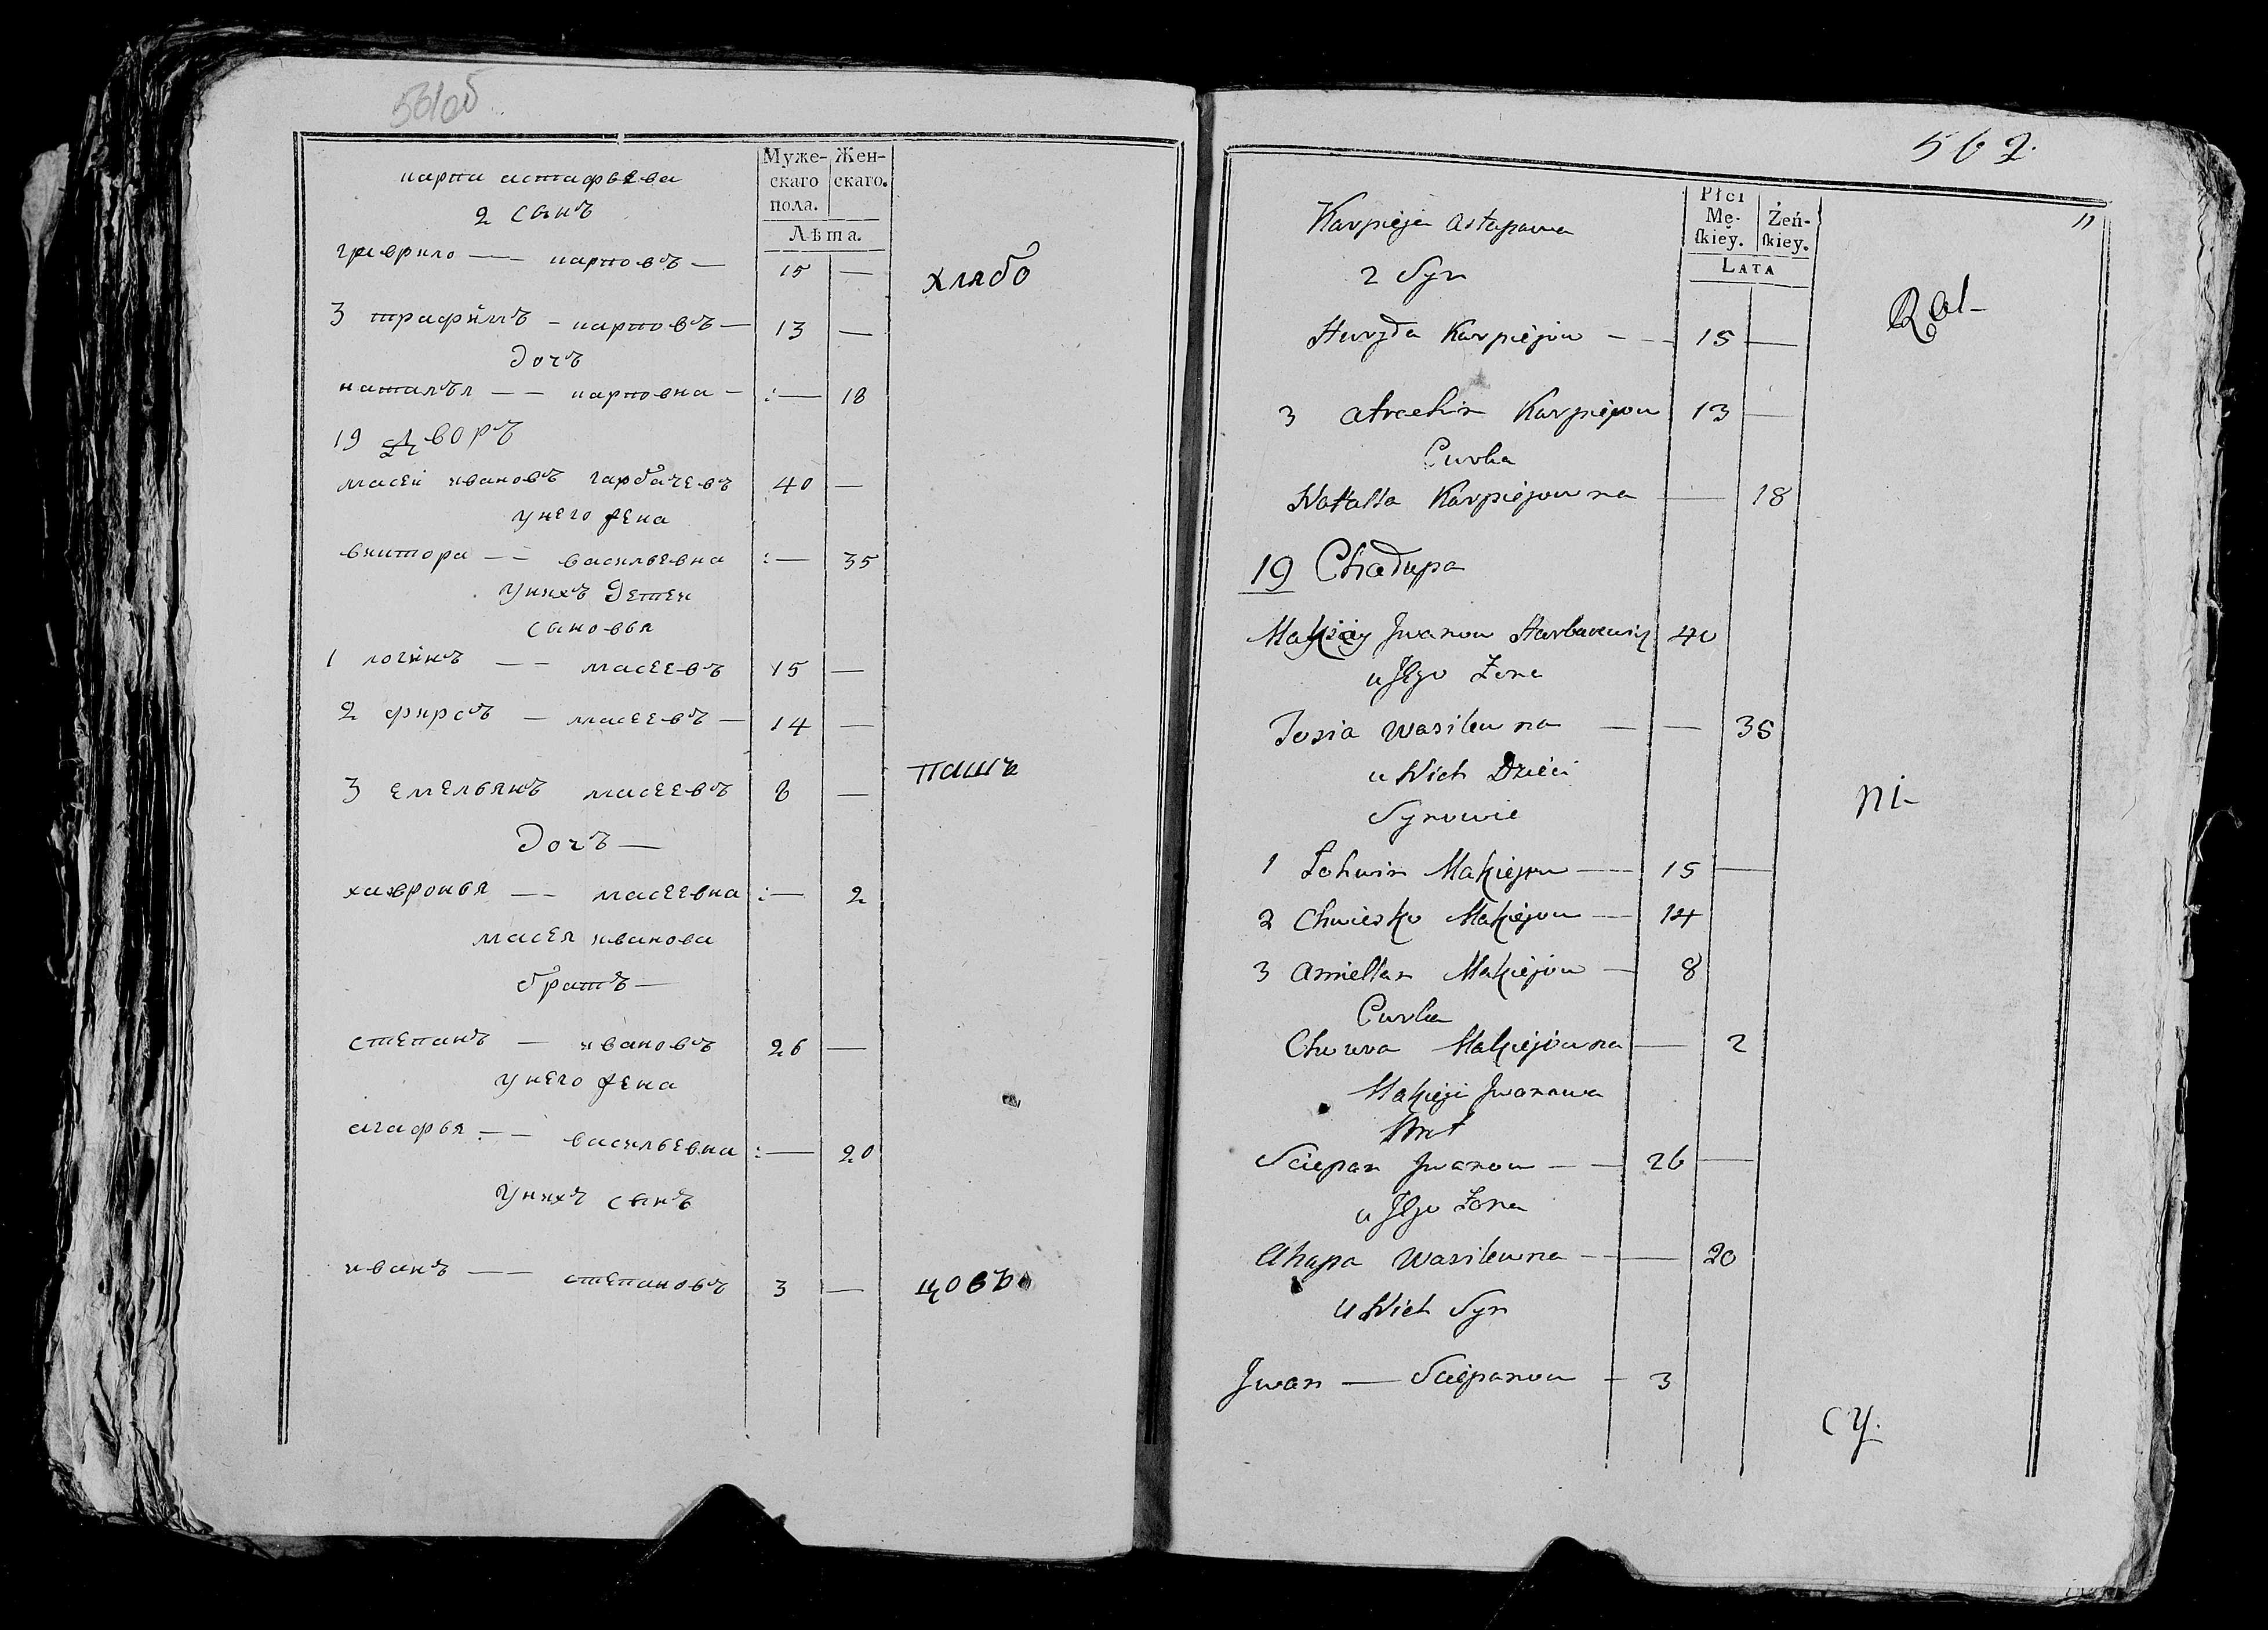 561об
Муже- Жен-
скаго скаго.
пола.
Лѣта.
карпа астафьева
2 сынъ
гаврило — карповъ — 15 —
хлѣбо
3 трафимъ — карповъ — 13 —
дочъ
наталъя — — карповна — :— 18
19 дворъ
масей ивановъ гарбачевъ 40 —
унего жена
виктора — — васильевна :— 35
унихъ детеи
сыновья
1 логинъ — — масеевъ 15 —
2 фирсъ — масеевъ — 14 —
3 емельянъ масеевъ 8 —
пашъ
дочъ —
хавронья — — масеевна :— 2
масея иванова
братъ —
степанъ — ивановъ 26 —
унего жена
агафья — — васильевна :— 20
унихъ сынъ
иванъ — — степановъ 3 —
цовъ
562.
11
Płci
Mę- Żeń-
skiey. skiey.
LATA
Karpieja Astapowa
2 Syn
Hurzda Karpiejow — — 15 —
Rol-
3 Atrachim Karpiejow 13 —
Curka
Natalla Karpiejowna — 18
19 Chałupa
Makiey Jwanow Harbaczewski 40
u Jego Zona
Jusia Wasilewna — — 35
u Nich Dzieci
Synowie
ni-
1 Lohwin Makiejow — 15 —
2 Chwiesko Makiejow — 14
3 Amiellan Makiejow — 8
Curka
Chowra Makiejowna — 2
Makieji Jwanowa
Brat
Sciepan Jwanow — — 26 —
u Jego Zona
Ahapa Wasilewna — — 20
u Nich Syn
Jwan — Sciepanow — 3
cy.